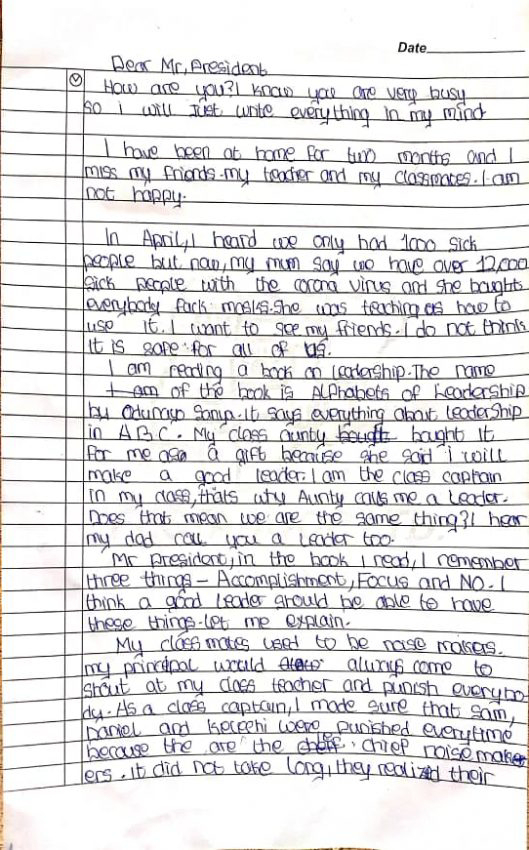 Date
Dear Mr, President
How are you? I know you are very busy
so i will Just write everything in my mind
I have been at home for two months and I
miss my friends. my teacher and my classmates. I am
not happy.
In April, I heard we only had 1000 sick
people but now, my mum say we have over 12,000
sick people with the corona virus and she boughts
everybody fack masks. She was teaching us how to
use it. I want to see my friends. I do not think
it is safe for all of us.
I am reading a book on leadership. The name
I am of the book is Alphabets of Leadership
by Odunayo Sanya. It says everything about leadership
in A B C. My class aunty bought bought it
for me as a gift because she said i will
make a good leader. I am the class captain
in my class, thats why Aunty calls me a leader.
Does that mean we are the same thing? I hear
my dad call you a leader too.
Mr president, in the book I read, I remember
three things - Accomplishment, Focus and NO. I
think a good leader should be able to have
these things. let me explain.
My class mates used to be noise makers.
my principal would always come to
shout at my class teacher and punish everybo
dy. As a class captain, I made sure that Sam,
Daniel and Kelechi were punished everytime
because the are the chief noise maker
ers. It did not take long, they realized their